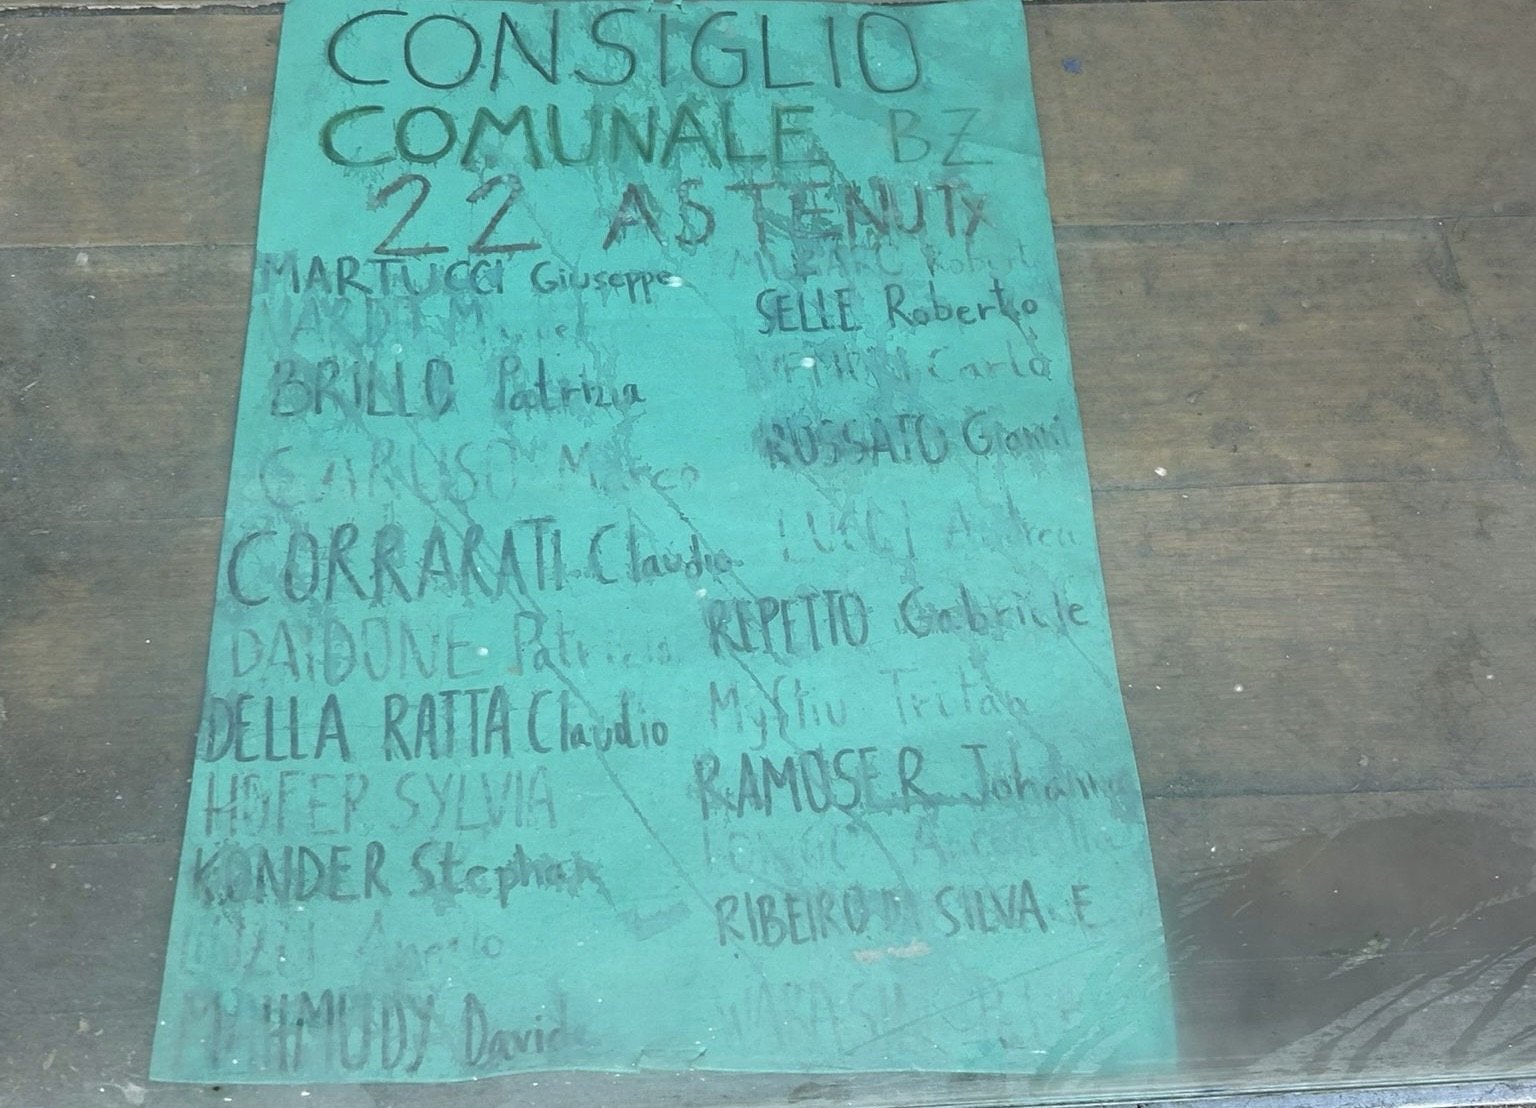 CONSIGLIO
COMUNALE BZ
22 ASTENUTx
MARTUCCI Giuseppe
BRILLO Patrizia
CARUSO Marco
CORRARATI Claudio
DAIDONE Patrizia
DELLA RATTA Claudio
HOFER SYLVIA
KONDER Stephan
Angelo
MAHMUDY Davide
Robert
SELLE Roberto
Carlo
ROSSATO Gianni
LUCCI Andrea
REPETTO Gabriele
Myftiu Tritan
RAMOSER Johanna
RIBEIRO DA SILVA E